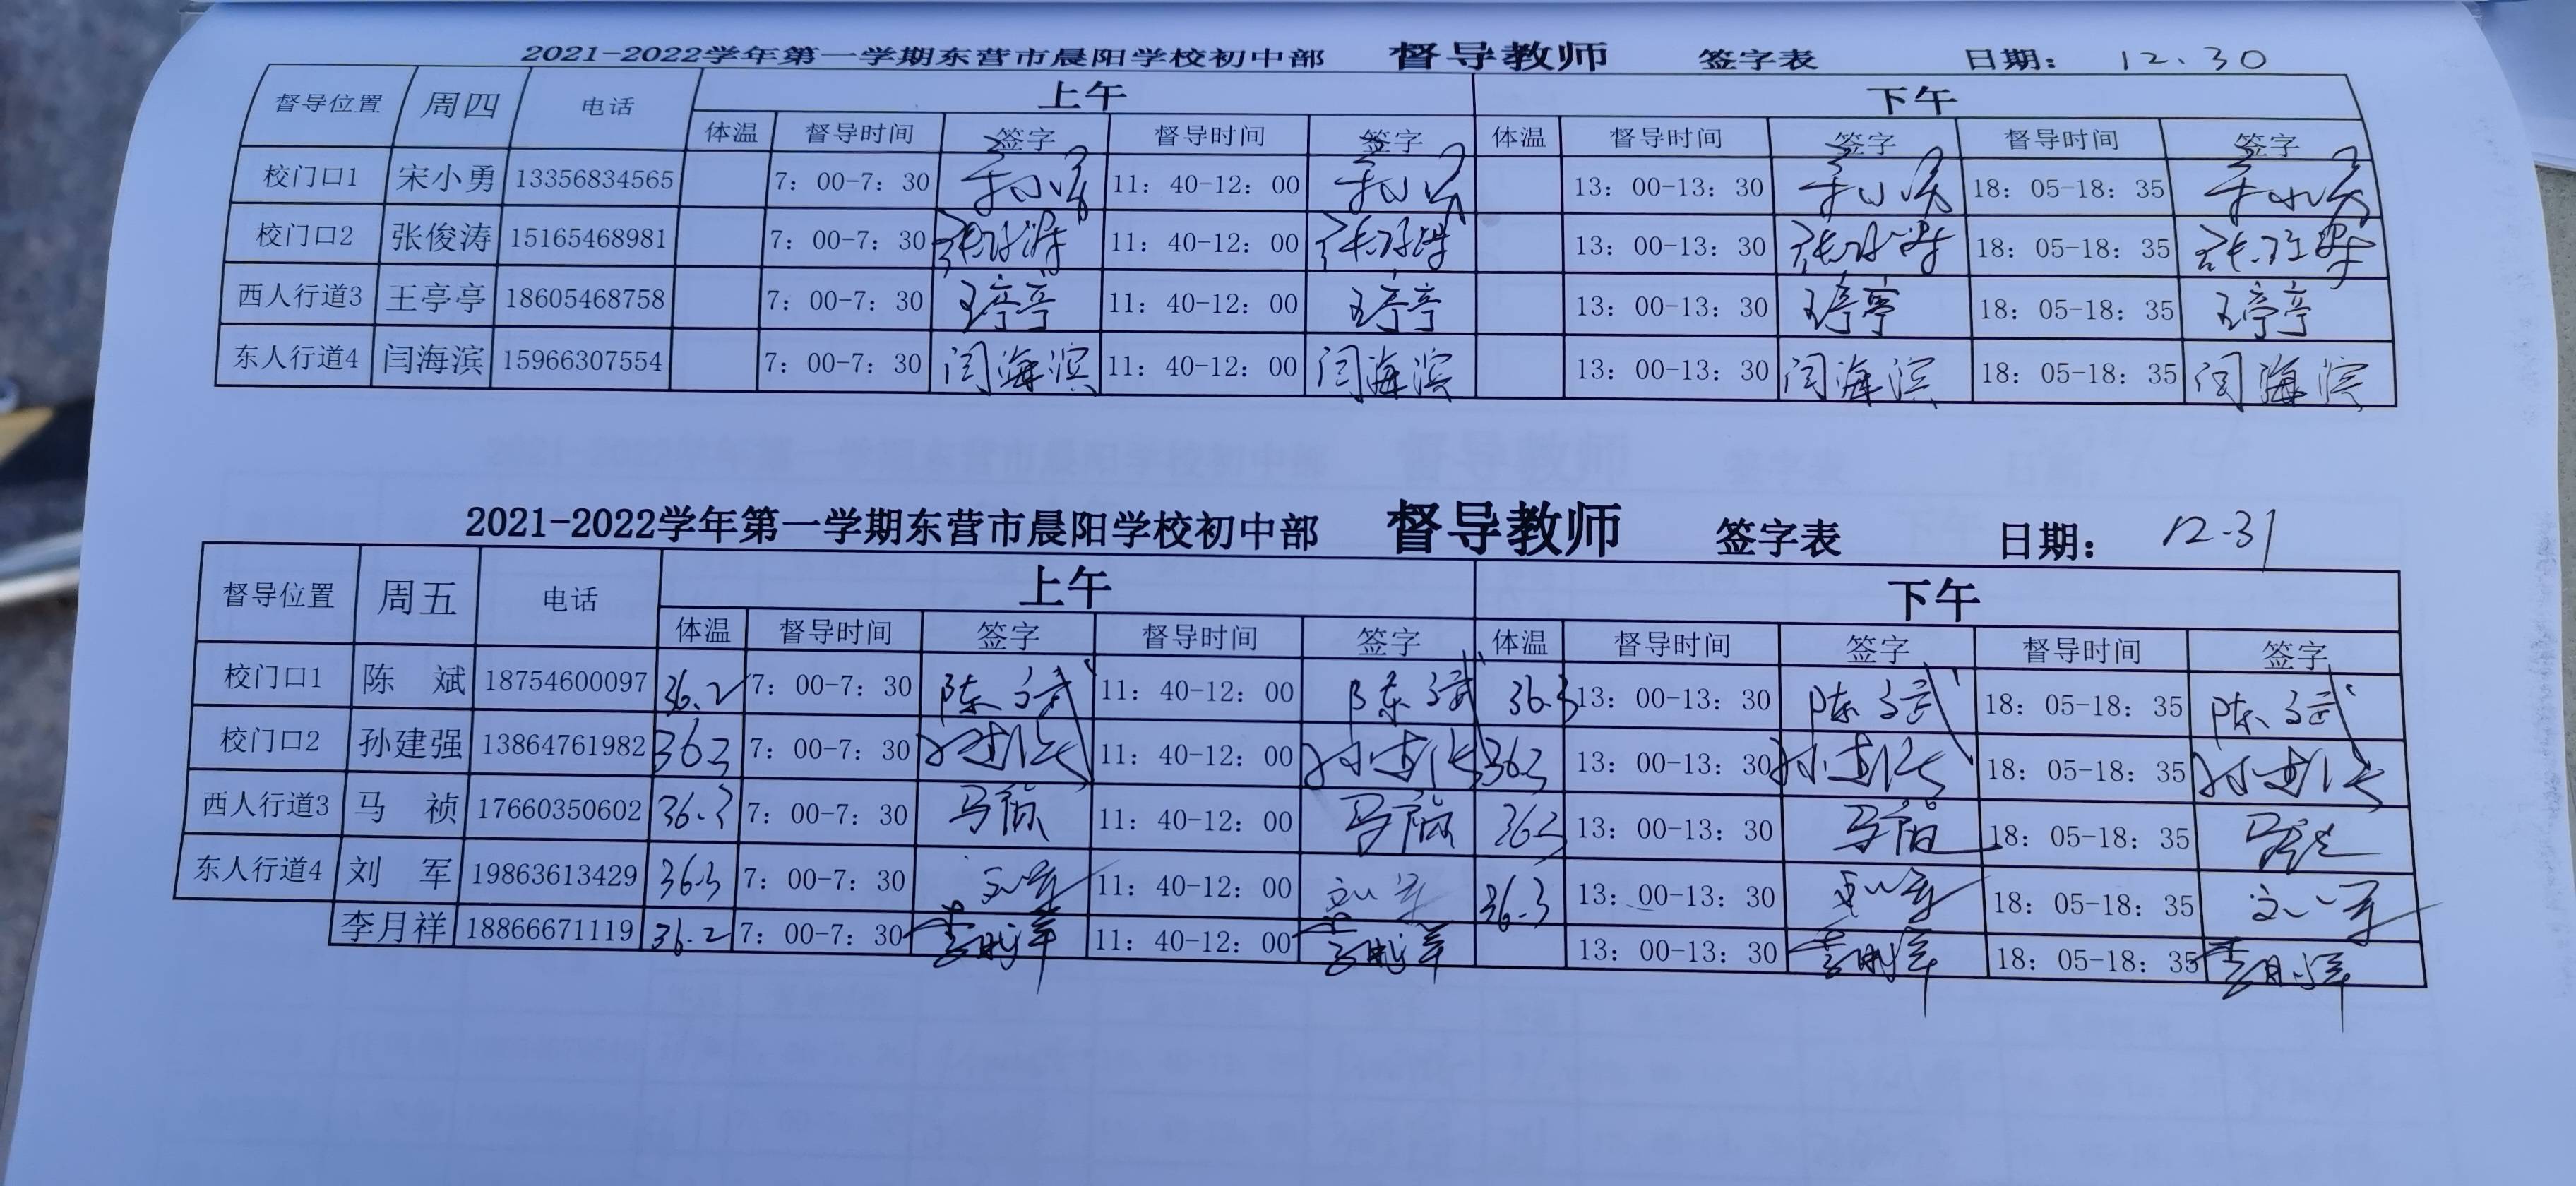 2021-2022学年第一学期东营市晨阳学校初中部 督导教师 签字表 日期: 12.30
督导位置 周四 电话 上午 下午
体温 督导时间 签字 督导时间 签字 体温 督导时间 签字 督导时间 签字
校门口1 宋小勇 13356834565 7: 00-7: 30 宋小勇 11: 40-12: 00 宋小勇 13: 00-13: 30 宋小勇 18: 05-18: 35 宋小勇
校门口2 张俊涛 15165468981 7: 00-7: 30 张俊涛 11: 40-12: 00 张俊涛 13: 00-13: 30 张俊涛 18: 05-18: 35 张俊涛
西人行道3 王亭亭 18605468758 7: 00-7: 30 王亭亭 11: 40-12: 00 王亭亭 13: 00-13: 30 王亭亭 18: 05-18: 35 王亭亭
东人行道4 闫海滨 15966307554 7: 00-7: 30 闫海滨 11: 40-12: 00 闫海滨 13: 00-13: 30 闫海滨 18: 05-18: 35 闫海滨
2021-2022学年第一学期东营市晨阳学校初中部 督导教师 签字表 日期: 12.31
督导位置 周五 电话 上午 下午
体温 督导时间 签字 督导时间 签字 体温 督导时间 签字 督导时间 签字
校门口1 陈 斌 18754600097 36.2 7: 00-7: 30 陈斌 11: 40-12: 00 陈斌 36.3 13: 00-13: 30 陈斌 18: 05-18: 35 陈斌
校门口2 孙建强 13864761982 363 7: 00-7: 30 孙建强 11: 40-12: 00 孙建强 363 13: 00-13: 30 孙建强 18: 05-18: 35 孙建强
西人行道3 马 祯 17660350602 36.3 7: 00-7: 30 马祯 11: 40-12: 00 马祯 36.3 13: 00-13: 30 马祯 18: 05-18: 35 马祯
东人行道4 刘 军 19863613429 36.3 7: 00-7: 30 刘军 11: 40-12: 00 刘军 36.3 13: 00-13: 30 刘军 18: 05-18: 35 刘军
李月祥 18866671119 36.2 7: 00-7: 30 李月祥 11: 40-12: 00 李月祥 13: 00-13: 30 李月祥 18: 05-18: 35 李月祥